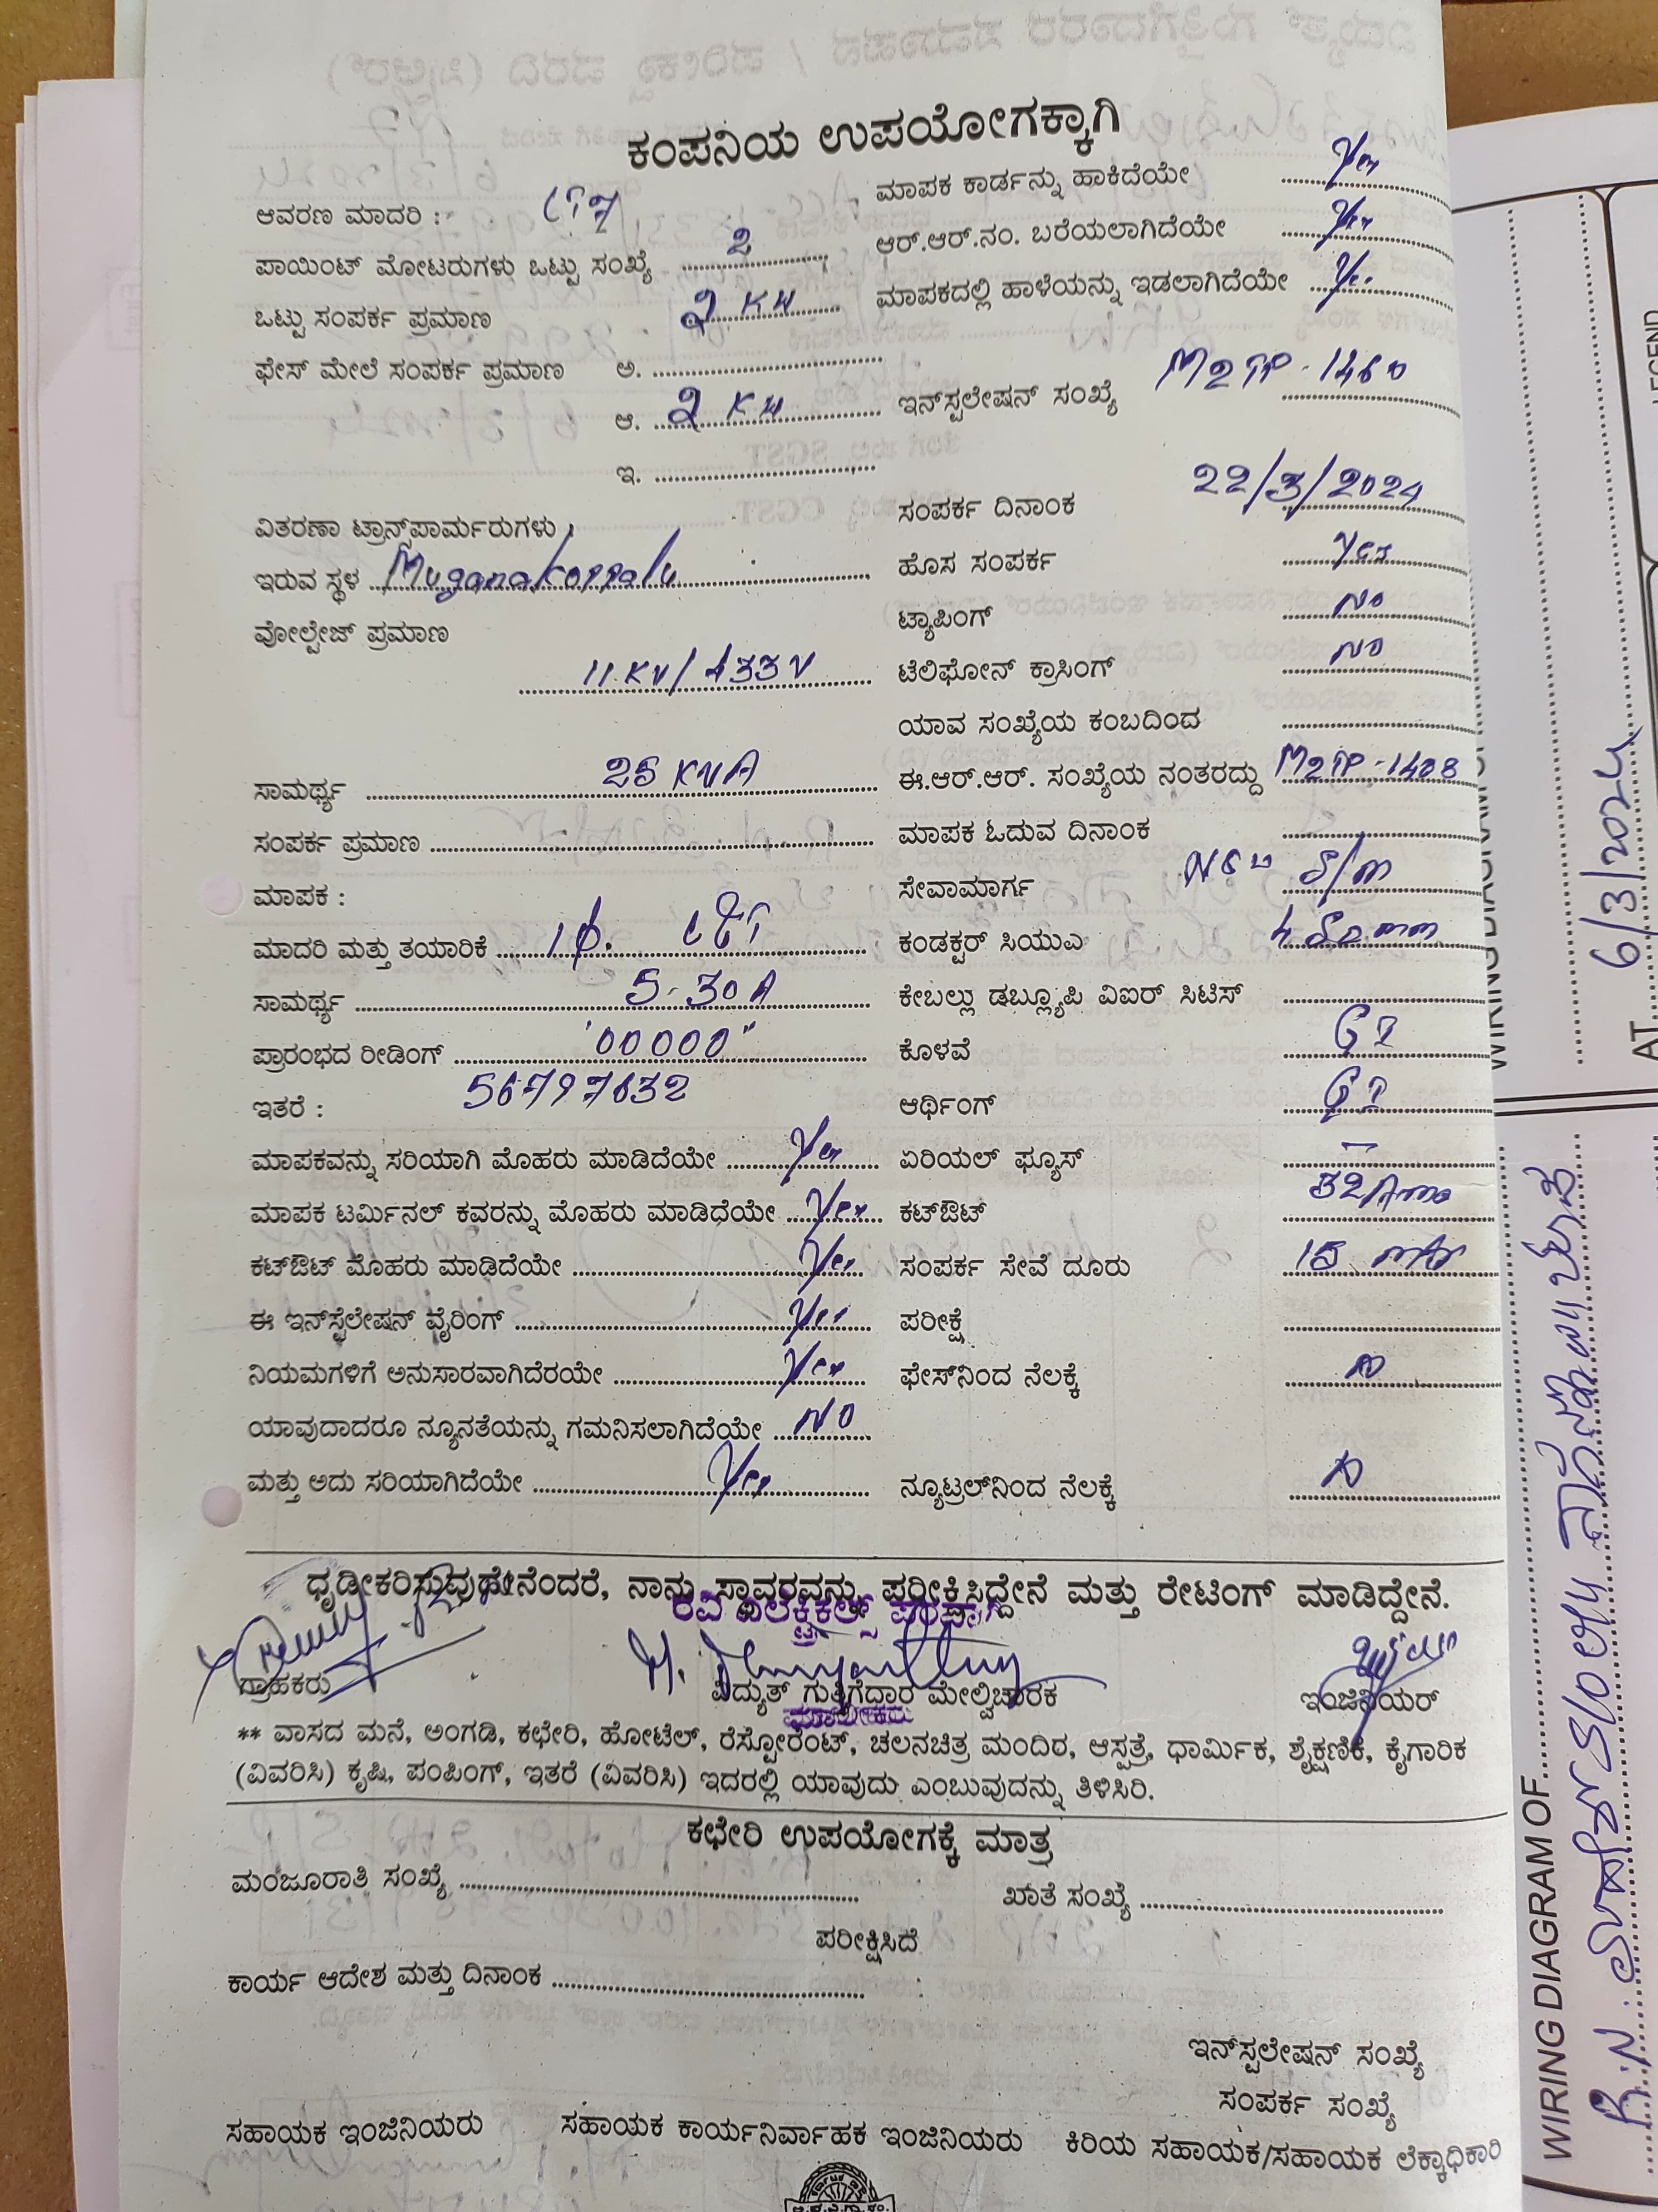 ಕಂಪನಿಯ ಉಪಯೋಗಕ್ಕಾಗಿ
ಆವರಣ ಮಾದರಿ :
ಪಾಯಿಂಟ್ ಮೋಟರುಗಳು ಒಟ್ಟು ಸಂಖ್ಯೆ 2
ಒಟ್ಟು ಸಂಪರ್ಕ ಪ್ರಮಾಣ 2 KW
ಫೇಸ್ ಮೇಲೆ ಸಂಪರ್ಕ ಪ್ರಮಾಣ ಅ.
ಆ. 2 KW
ಇ.
ವಿತರಣಾ ಟ್ರಾನ್ಸ್‌ಪಾರ್ಮರುಗಳು :
ಇರುವ ಸ್ಥಳ Muganakoppalu
ವೋಲ್ಟೇಜ್ ಪ್ರಮಾಣ
11 KV / 433 V
ಸಾಮರ್ಥ್ಯ 25 KVA
ಸಂಪರ್ಕ ಪ್ರಮಾಣ
ಮಾಪಕ :
ಮಾದರಿ ಮತ್ತು ತಯಾರಿಕೆ 1φ.
ಸಾಮರ್ಥ್ಯ 5-30A
ಪ್ರಾರಂಭದ ರೀಡಿಂಗ್ "00000"
ಇತರೆ : 56797632
ಮಾಪಕವನ್ನು ಸರಿಯಾಗಿ ಮೊಹರು ಮಾಡಿದೆಯೇ Yes
ಮಾಪಕ ಟರ್ಮಿನಲ್ ಕವರನ್ನು ಮೊಹರು ಮಾಡಿಧೆಯೇ Yes
ಕಟ್‌ಔಟ್ ಮೊಹರು ಮಾಡಿದೆಯೇ Yes
ಈ ಇನ್‌ಸ್ಟೆಲೇಷನ್ ವೈರಿಂಗ್ Yes
ನಿಯಮಗಳಿಗೆ ಅನುಸಾರವಾಗಿದೆರಯೇ Yes
ಯಾವುದಾದರೂ ನ್ಯೂನತೆಯನ್ನು ಗಮನಿಸಲಾಗಿದೆಯೇ NO
ಮತ್ತು ಅದು ಸರಿಯಾಗಿದೆಯೇ Yes
ಮಾಪಕ ಕಾರ್ಡನ್ನು ಹಾಕಿದೆಯೇ Yes
ಆರ್.ಆರ್.ನಂ. ಬರೆಯಲಾಗಿದೆಯೇ Yes
ಮಾಪಕದಲ್ಲಿ ಹಾಳೆಯನ್ನು ಇಡಲಾಗಿದೆಯೇ Yes
ಇನ್‌ಸ್ಟಲೇಷನ್ ಸಂಖ್ಯೆ M2TP-1460
ಸಂಪರ್ಕ ದಿನಾಂಕ 22/3/2024
ಹೊಸ ಸಂಪರ್ಕ Yes
ಟ್ಯಾಪಿಂಗ್ NO
ಟೆಲಿಫೋನ್ ಕ್ರಾಸಿಂಗ್ NO
ಯಾವ ಸಂಖ್ಯೆಯ ಕಂಬದಿಂದ
ಈ.ಆರ್.ಆರ್. ಸಂಖ್ಯೆಯ ನಂತರದ್ದು M2TP-1408
ಮಾಪಕ ಓದುವ ದಿನಾಂಕ
ಸೇವಾಮಾರ್ಗ New S/m
ಕಂಡಕ್ಟರ್ ಸಿಯುಎ 4 Sq.mm
ಕೇಬಲ್ಲು ಡಬ್ಲ್ಯೂಪಿ ವಿಐರ್ ಸಿಟಿಸ್
ಕೊಳವೆ GI
ಆರ್ಥಿಂಗ್ GI
ಏರಿಯಲ್ ಫ್ಯೂಸ್ -
ಕಟ್‌ಔಟ್ 32Amp
ಸಂಪರ್ಕ ಸೇವೆ ದೂರು 15 mtr
ಪರೀಕ್ಷೆ
ಫೇಸ್‌ನಿಂದ ನೆಲಕ್ಕೆ
ನ್ಯೂಟ್ರಲ್‌ನಿಂದ ನೆಲಕ್ಕೆ
ಧೃಡೀಕರಿಸುವುದೇನೆಂದರೆ, ನಾನು ಸ್ಥಾವರವನ್ನು ಪರೀಕ್ಷಿಸಿದ್ದೇನೆ ಮತ್ತು ರೇಟಿಂಗ್ ಮಾಡಿದ್ದೇನೆ.
ಗ್ರಾಹಕರು
ವಿದ್ಯುತ್ ಗುತ್ತಿಗೆದಾರ ಮೇಲ್ವಿಚಾರಕ
ಇಂಜಿನಿಯರ್
ಮಾಲೀಕರು
** ವಾಸದ ಮನೆ, ಅಂಗಡಿ, ಕಛೇರಿ, ಹೋಟೆಲ್, ರೆಸ್ಟೋರೆಂಟ್, ಚಲನಚಿತ್ರ ಮಂದಿರ, ಆಸ್ಪತ್ರೆ, ಧಾರ್ಮಿಕ, ಶೈಕ್ಷಣಿಕ, ಕೈಗಾರಿಕ
(ವಿವರಿಸಿ) ಕೃಷಿ, ಪಂಪಿಂಗ್, ಇತರೆ (ವಿವರಿಸಿ) ಇದರಲ್ಲಿ ಯಾವುದು ಎಂಬುವುದನ್ನು ತಿಳಿಸಿರಿ.
ಕಛೇರಿ ಉಪಯೋಗಕ್ಕೆ ಮಾತ್ರ
ಮಂಜೂರಾತಿ ಸಂಖ್ಯೆ
ಖಾತೆ ಸಂಖ್ಯೆ
ಪರೀಕ್ಷಿಸಿದೆ
ಕಾರ್ಯ ಆದೇಶ ಮತ್ತು ದಿನಾಂಕ
ಇನ್‌ಸ್ಟಲೇಷನ್ ಸಂಖ್ಯೆ
ಸಂಪರ್ಕ ಸಂಖ್ಯೆ
ಸಹಾಯಕ ಇಂಜಿನಿಯರು
ಸಹಾಯಕ ಕಾರ್ಯನಿರ್ವಾಹಕ ಇಂಜಿನಿಯರು
ಕಿರಿಯ ಸಹಾಯಕ/ಸಹಾಯಕ ಲೆಕ್ಕಾಧಿಕಾರಿ
WIRING DIAGRAM OF
AT 6/3/2024
LEGEND